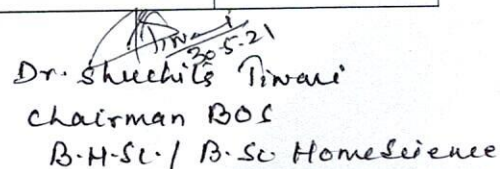 Tiwari
30-5-21
Dr. Shuchita Tiwari
Chairman BOS
B.H.Sc. / B.Sc HomeScience